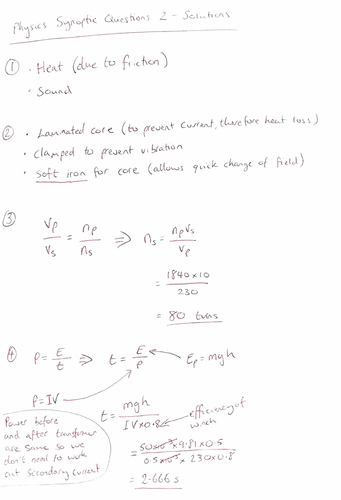 Physics Synoptic Questions 2 - Solutions
① • Heat (due to friction)
• Sound
② • Laminated core (to prevent current, therefore heat loss)
• Clamped to prevent vibration
• Soft iron for core (allows quick change of field)
③ Vp/Vs = np/ns ⇒ ns = npVs/Vp
= 1840×10/230
= 80 turns
④ P = E/t ⇒ t = E/P Ep = mgh
P = IV
t = mgh/IV×0.8 efficiency of winch
= 50×10⁻³×9.81×0.5/0.5×10⁻³×230×0.8
= 2.666 s
Power before
and after transformer
are same so we
don't need to work
out secondary current